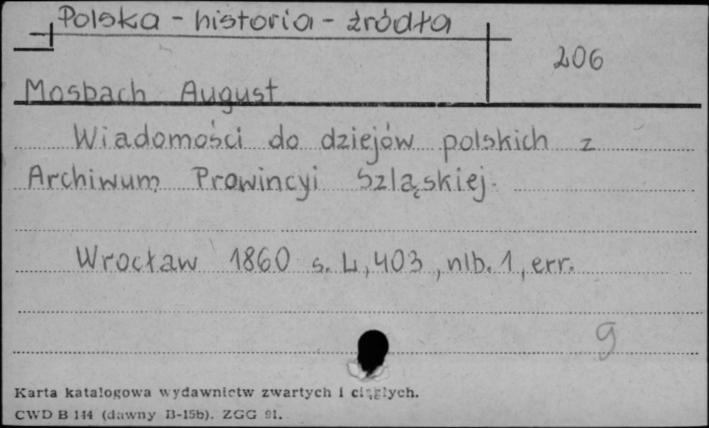 Polska - historia - źródła
206
Mosbach August
Wiadomości do dziejów polskich z
Archiwum Prowincyi Szląskiej.
Wrocław 1860 s. 4, 403, nlb. 1, err.
9
Karta katalogowa wydawnictw zwartych i ciągłych.
CWD B 144 (dawny B-15b). ZGG 91.